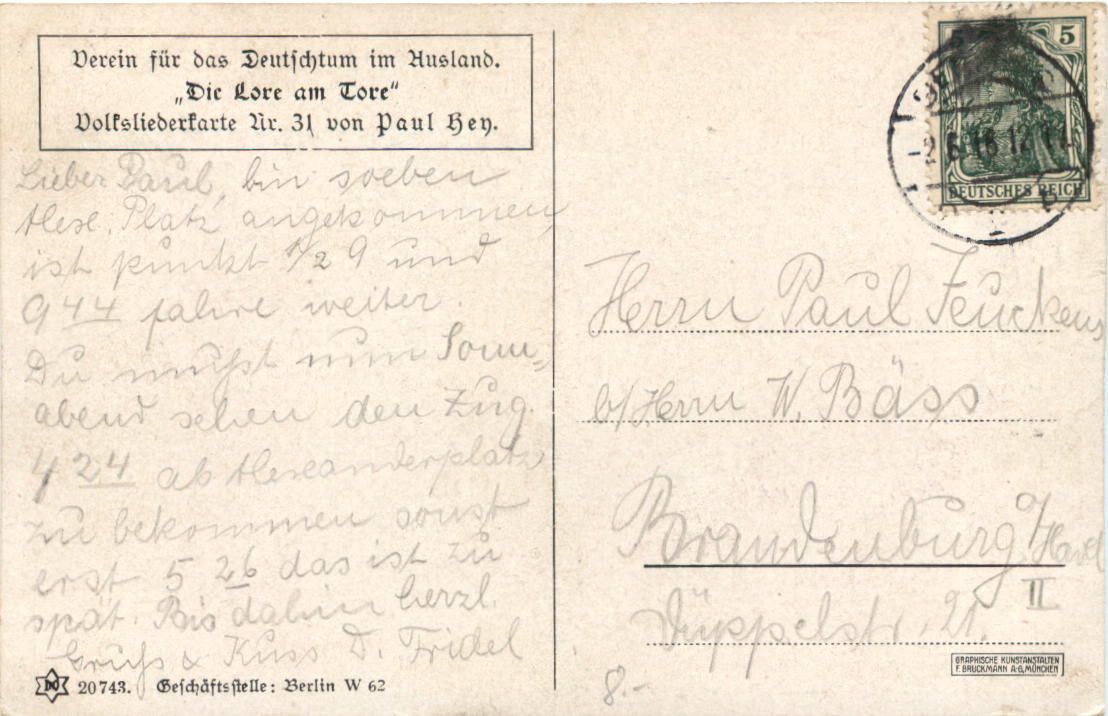 Verein für das Deutschtum im Ausland.
„Die Lore am Tore“
Volksliederkarte Nr. 31 von Paul Hey.
Lieber Paul, bin soeben
Alex. Platz angekommen,
ist punkt 1/2 9 und
9 44 fahre weiter.
Du mußt nun Sonn-
abend sehen den Zug
4 24 ab Alexanderplatz
zu bekommen sonst
erst 5 26 das ist zu
spät. Bis dahin herzl.
Gruß & Kuss D. Fridel
DO 20743. Geschäftsstelle: Berlin W 62
5 5
DEUTSCHES REICH
2.6.18.12
Herrn Paul Feuckens
b/Herrn W. Bäss
Brandenburg a/Havel
II
Düppelstr. 21.
GRAPHISCHE KUNSTANSTALTEN
F. BRUCKMANN A-G, MÜNCHEN
8.-